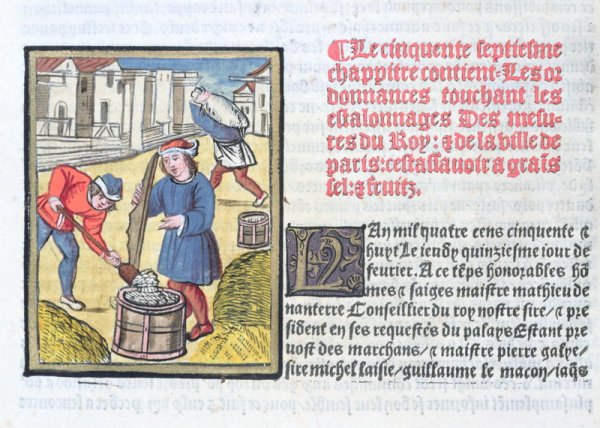 ¶Le cinquente septiesme
chappitre contient. Les or
donnances touchant les
estalonnages Des mesu-
res du Roy: & de la ville de
paris: cestassavoir a grais
sel: & fruitz.
LAn mil quatre cens cinquente &
huyt Le ieudy quinziesme iour de
feurier. A ce tẽps honorables hõ
mes & saiges maistre mathieu de
nanterre Conseillier du roy nostre sire/ & pre
sident en ses requestes du palays Estant pre
uost des marchans/ & maistre pierre galye/
sire michel laisie/ guillaume le macon/ iaq̃s